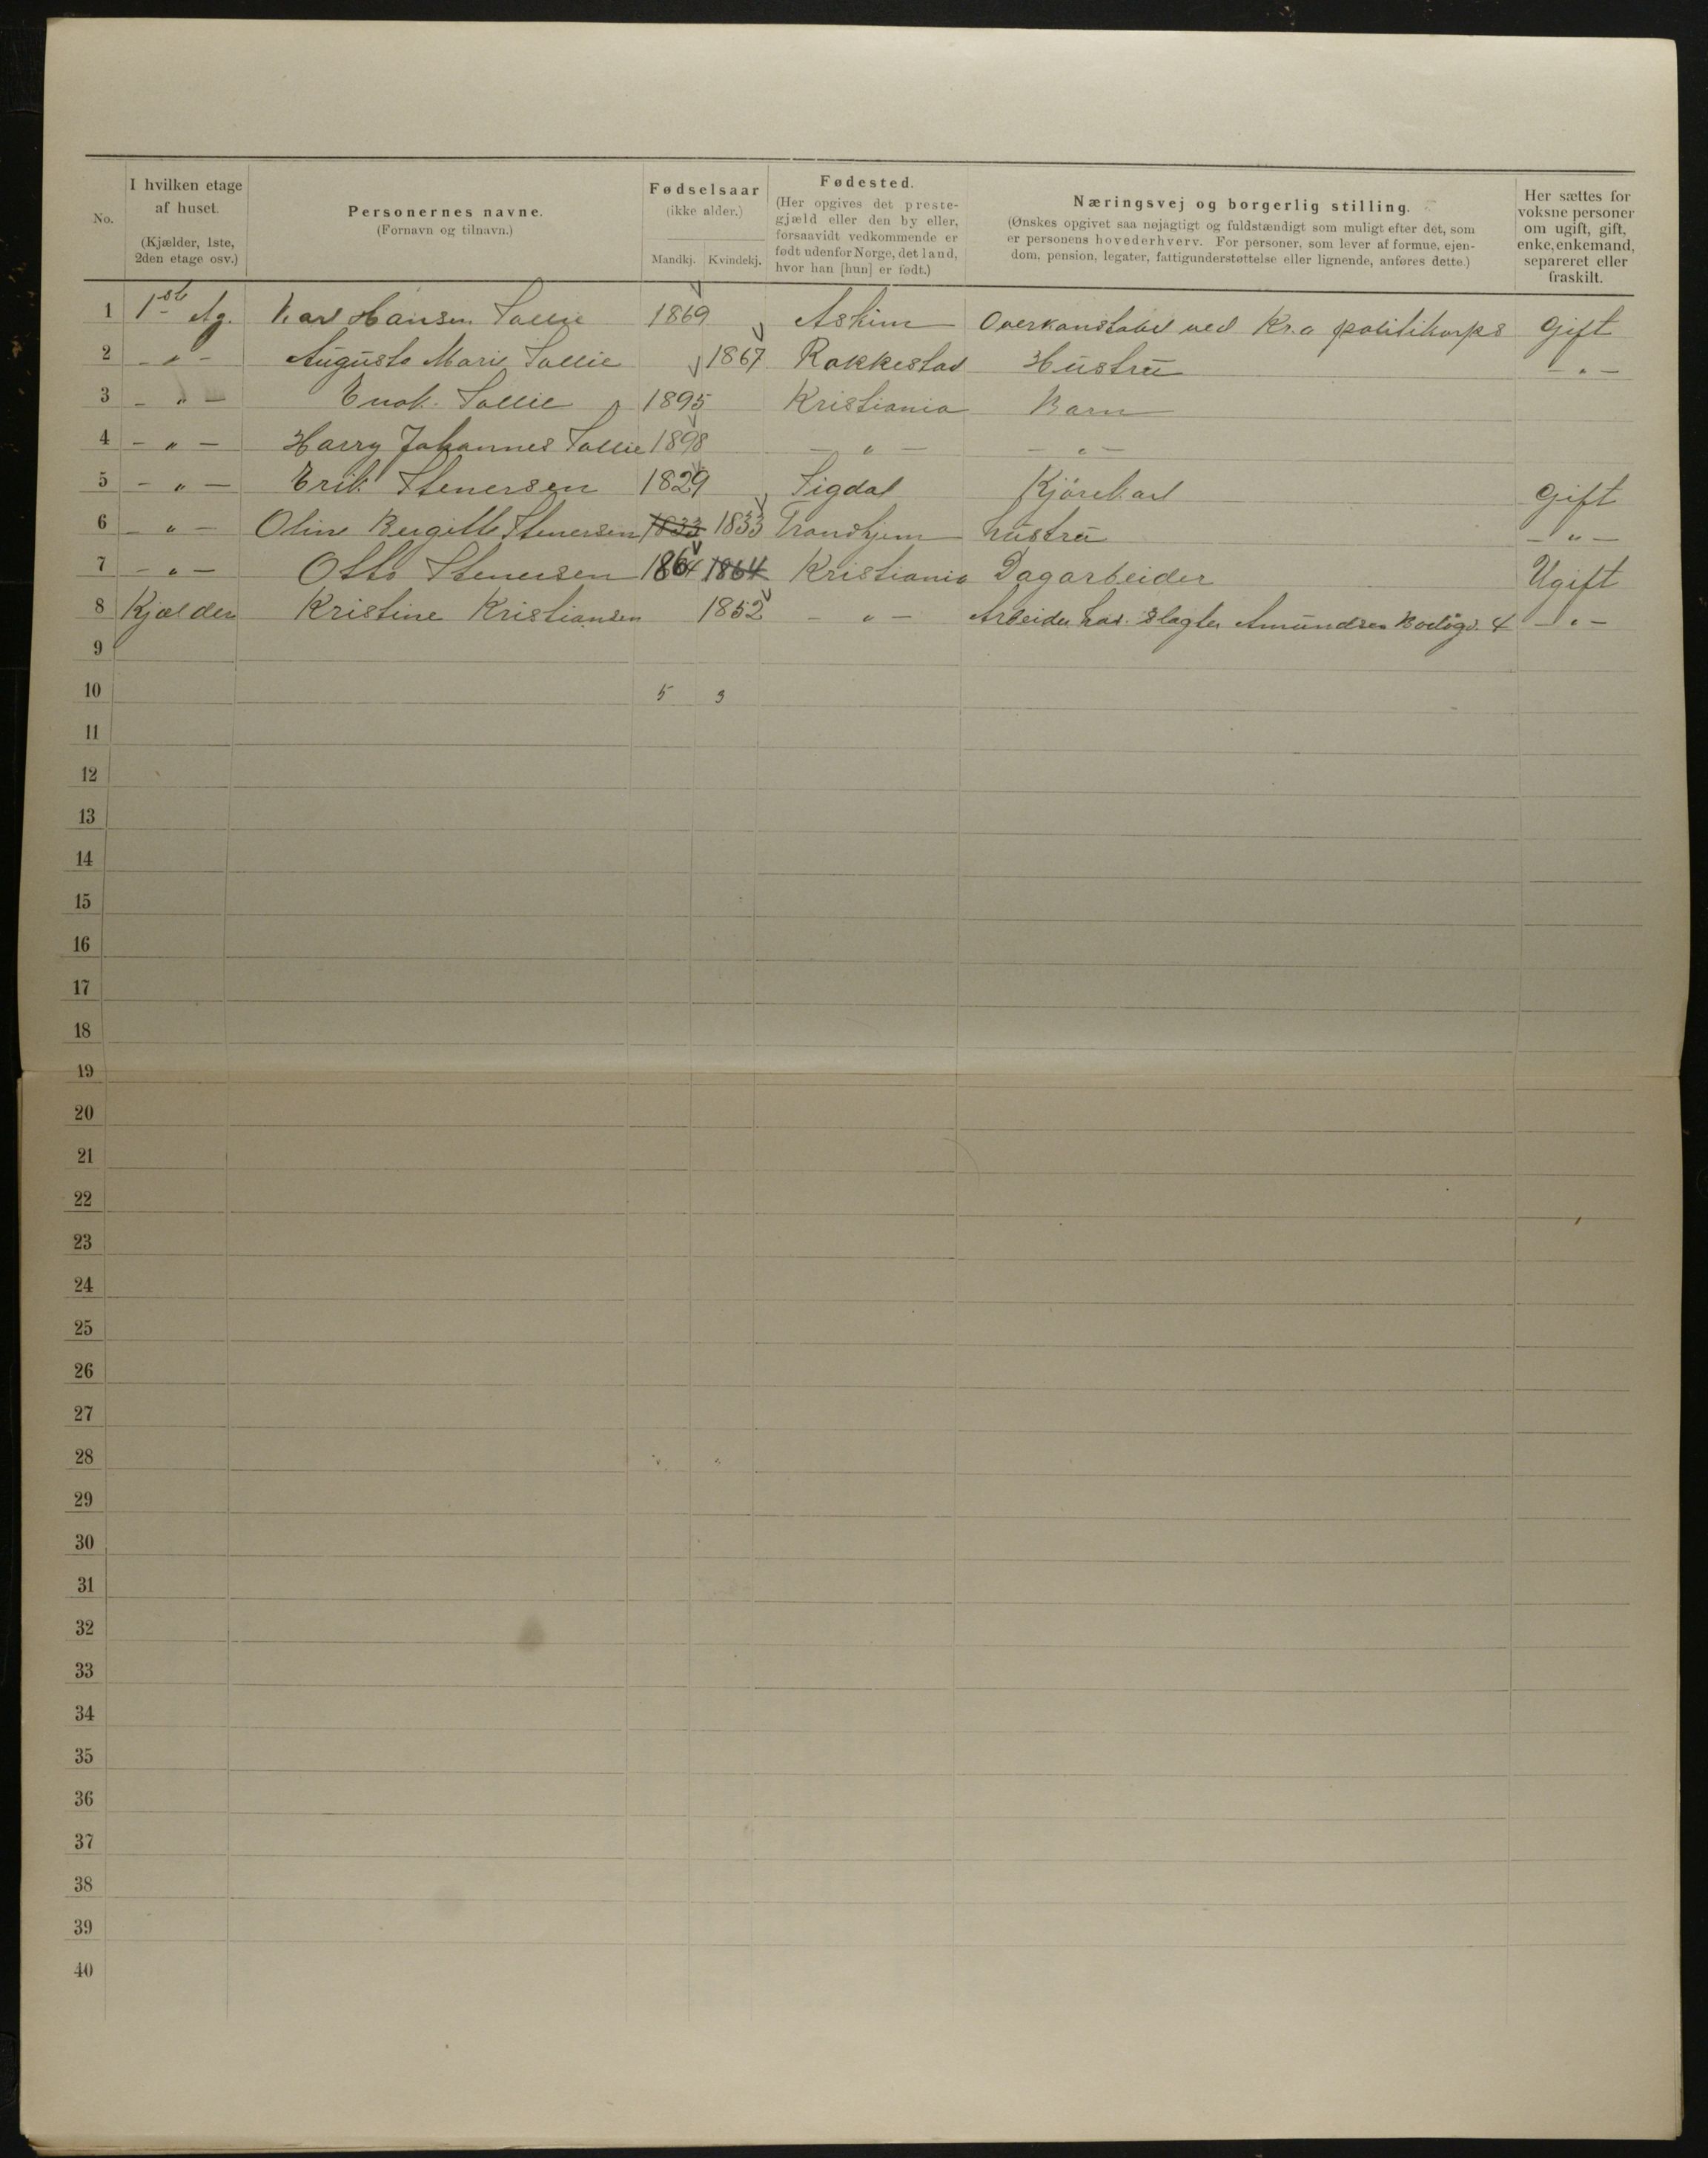 No.
I hvilken etage
af huset.
(Kjælder, 1ste,
2den etage osv.)
Personernes navne.
(Fornavn og tilnavn.)
Fødselsaar
(ikke alder.)
Mandkj. Kvindekj.
Fødested.
(Her opgives det preste-
gjæld eller den by eller,
forsaavidt vedkommende er
født udenfor Norge, det land,
hvor han [hun] er født.)
Næringsvej og borgerlig stilling.
(Ønskes opgivet saa nøjagtigt og fuldstændigt som muligt efter det, som
er personens hovederhverv. For personer, som lever af formue, ejen-
dom, pension, legater, fattigunderstøttelse eller lignende, anføres dette.)
Her sættes for
voksne personer
om ugift, gift,
enke, enkemand,
separeret eller
fraskilt.
1 1ste Hansen Sollie 1869 Askim Overkonstabel ved Kr.a politikorps Gift
2 - " - Augusta Marie Sollie 1867 Rakkestad Hustru - " -
3 - " - Enok Sollie 1895 Kristiania Barn
4 - " - Harry Johannes Sollie 1898 - " - - " -
5 - " - Erik Stenersen 1829 Sigdal Kjörekarl Gift
6 - " - Oline Bergitte Stenersen 1833 1833 Trondhjem hustru - " -
7 - " - Otto Stenersen 1864 1864 Kristiania Dagarbeider Ugift
8 Kjælder Kristine Kristiansen 1852 - " - Arbeider hos Slagter Amundsen Bodögd. 4 - " -
9
10 5 3
11
12
13
14
15
16
17
18
19
20
21
22
23
24
25
26
27
28
29
30
31
32
33
34
35
36
37
38
39
40